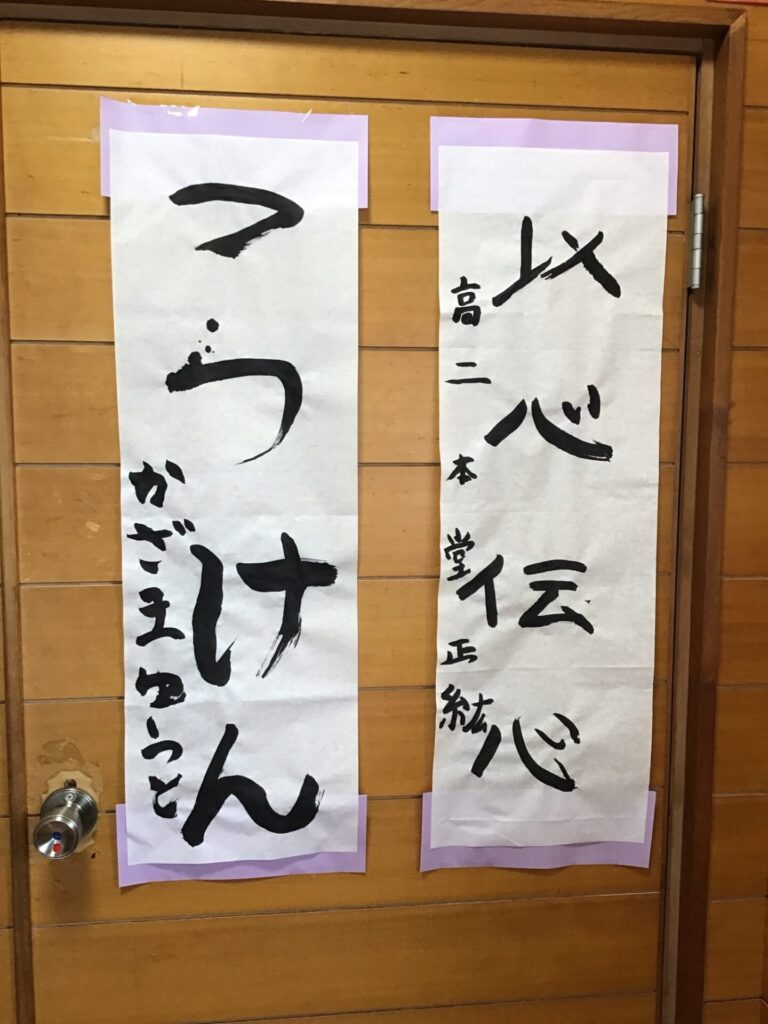 以心伝心
高二 本堂正紘
こうけん
かざまゆうと